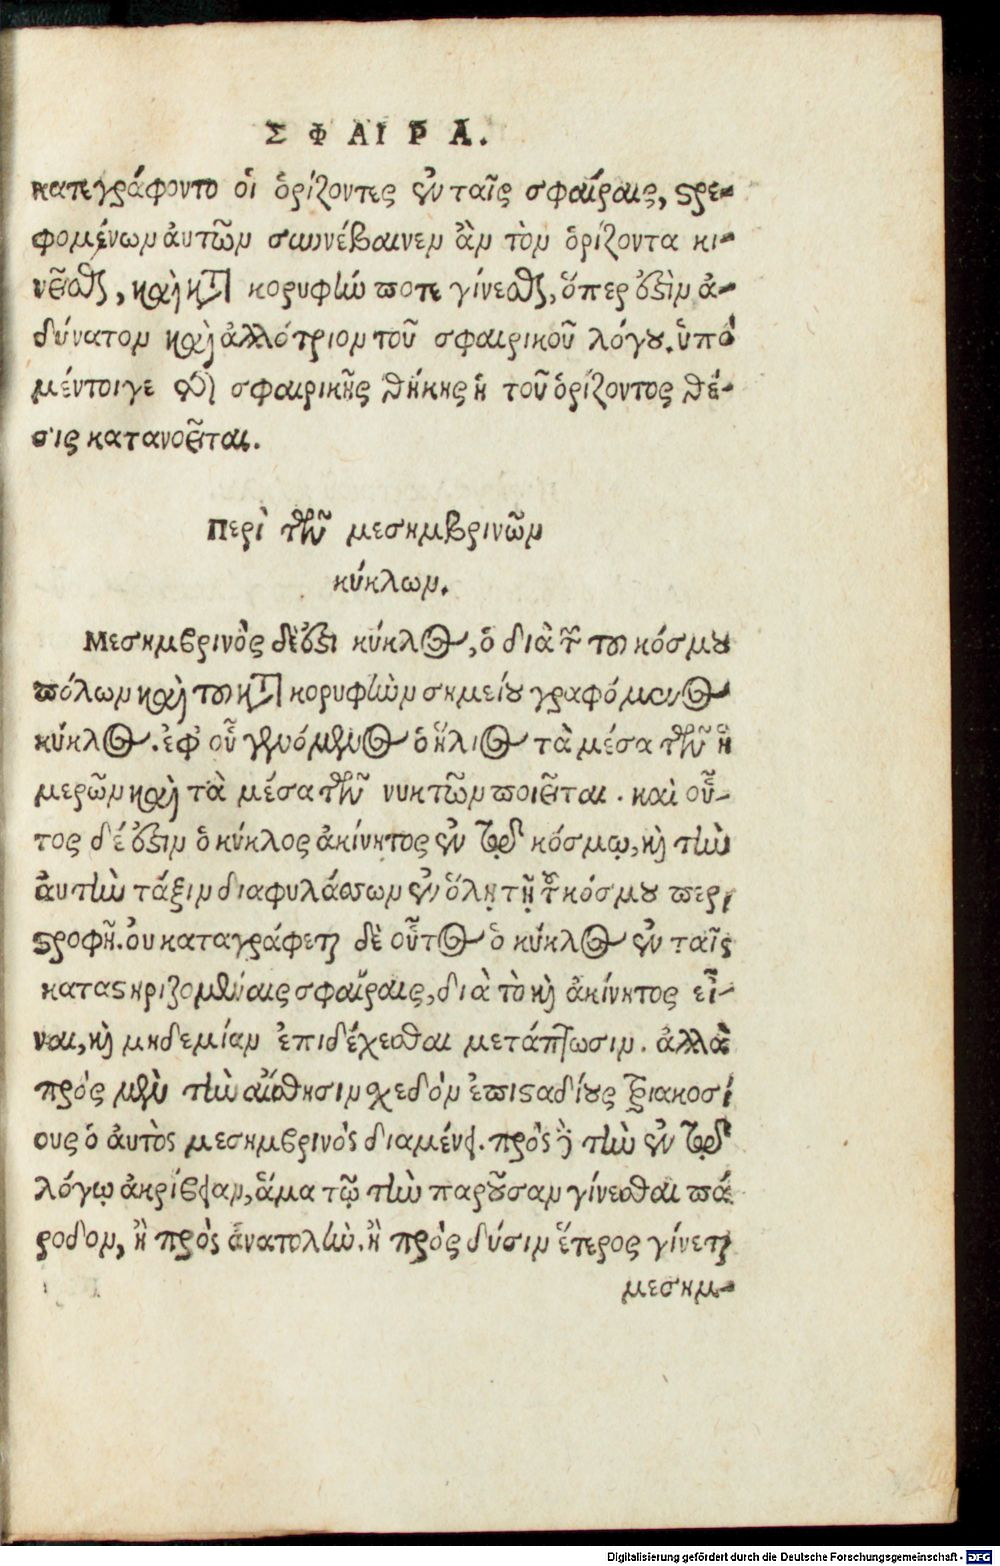 ΣΦΑΙΡΑ.
κατεγράφοντο οἱ ὁρίζοντες ἐν ταῖς σφαίραις, στρε-
φομένων ἀυτῶν συνέβαινεν ἂν τὸν ὁρίζοντα κι-
νεῖσθαι, καὶ κατὰ κορυφὴν ποτε γίνεσθαι, ὅπερ ἐστὶν ἀ-
δύνατον καὶ ἀλλότριον τοῦ σφαιρικοῦ λόγου. ὑπὸ
μέντοιγε τῆς σφαιρικῆς θήκης ἡ τοῦ ὁρίζοντος θέ-
σις κατανοεῖται.
Περὶ τῶν μεσημβρινῶν
κύκλων.
Μεσημβρινὸς δὲ ἐστι κύκλος, ὁ διὰ τῶν τοῦ κόσμου
πόλων καὶ τοῦ κατὰ κορυφὴν σημείου γραφόμενος
κύκλος. ἐφ' οὗ γενόμενος ὁ ἥλιος τὰ μέσα τῶν ἡ
μερῶν καὶ τὰ μέσα τῶν νυκτῶν ποιεῖται. καὶ οὗ-
τος δέ ἐστιν ὁ κύκλος ἀκίνητος ἐν τῷ κόσμῳ, καὶ τὴν
ἀυτὴν τάξιν διαφυλάσσων ἐν ὅλῃ τῇ τοῦ κόσμου περι
στροφῇ. ὀυ καταγράφεται δὲ οὗτος ὁ κύκλος ἐν ταῖς
καταστηριζομέναις σφαίραις, διὰ τὸ καὶ ἀκίνητος εἶ-
ναι, καὶ μηδεμίαν ἐπιδέχεσθαι μετάπτωσιν. ἀλλὰ
πρός μὲν τὴν αἴσθησιν χεδὸν ἐπι σταδίους τριακοσί
ους ὁ ἀυτὸς μεσημβρινὸς διαμένει. πρὸς δὲ τὴν ἐν τῷ
λόγῳ ἀκρίβειαν, ἅμα τῷ τὴν παροῦσαν γίνεσθαι πά
ροδον, ἢ πρὸς ἀνατολὴν. ἢ πρὸς δύσιν ἕτερος γίνεται
μεσημ-
Digitalisierung gefördert durch die Deutsche Forschungsgemeinschaft - DFG